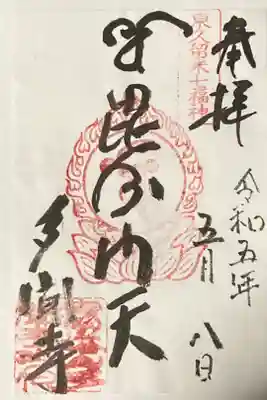 奉拝
令和五年
五月八日
東久留米七福神
毘沙門天
多聞寺